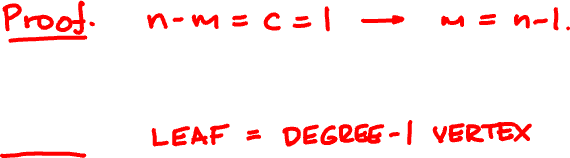 Proof. n-m = c = 1 → m = n-1.
LEAF = DEGREE-1 VERTEX